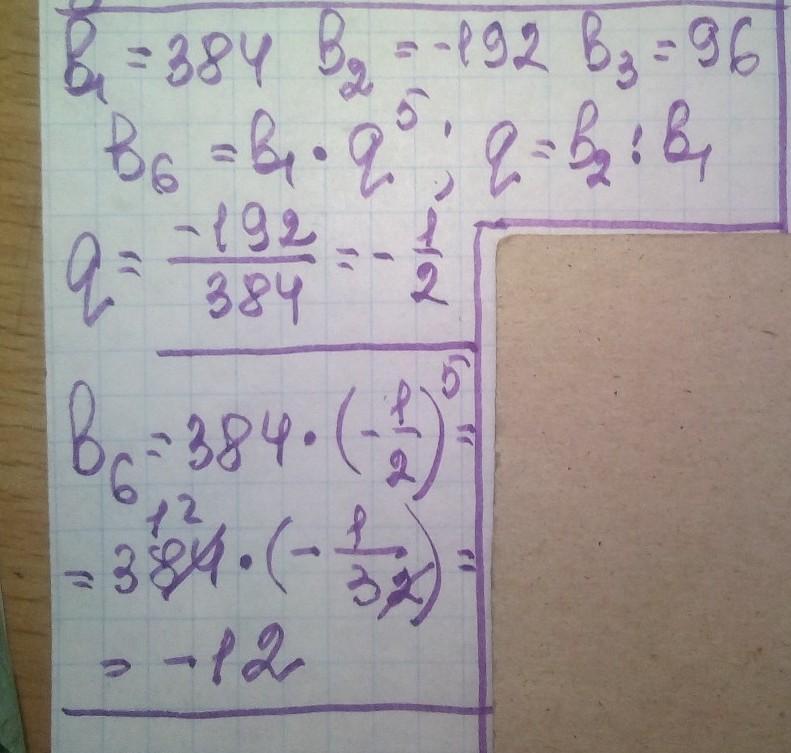 b₁ = 384 b₂ = -192 b₃ = 96
b₆ = b₁ · q⁵; q = b₂ : b₁
q = -192/384 = -1/2
b₆ = 384 · (-1/2)⁵ =
12
= 384 · (-1/32) =
= -12